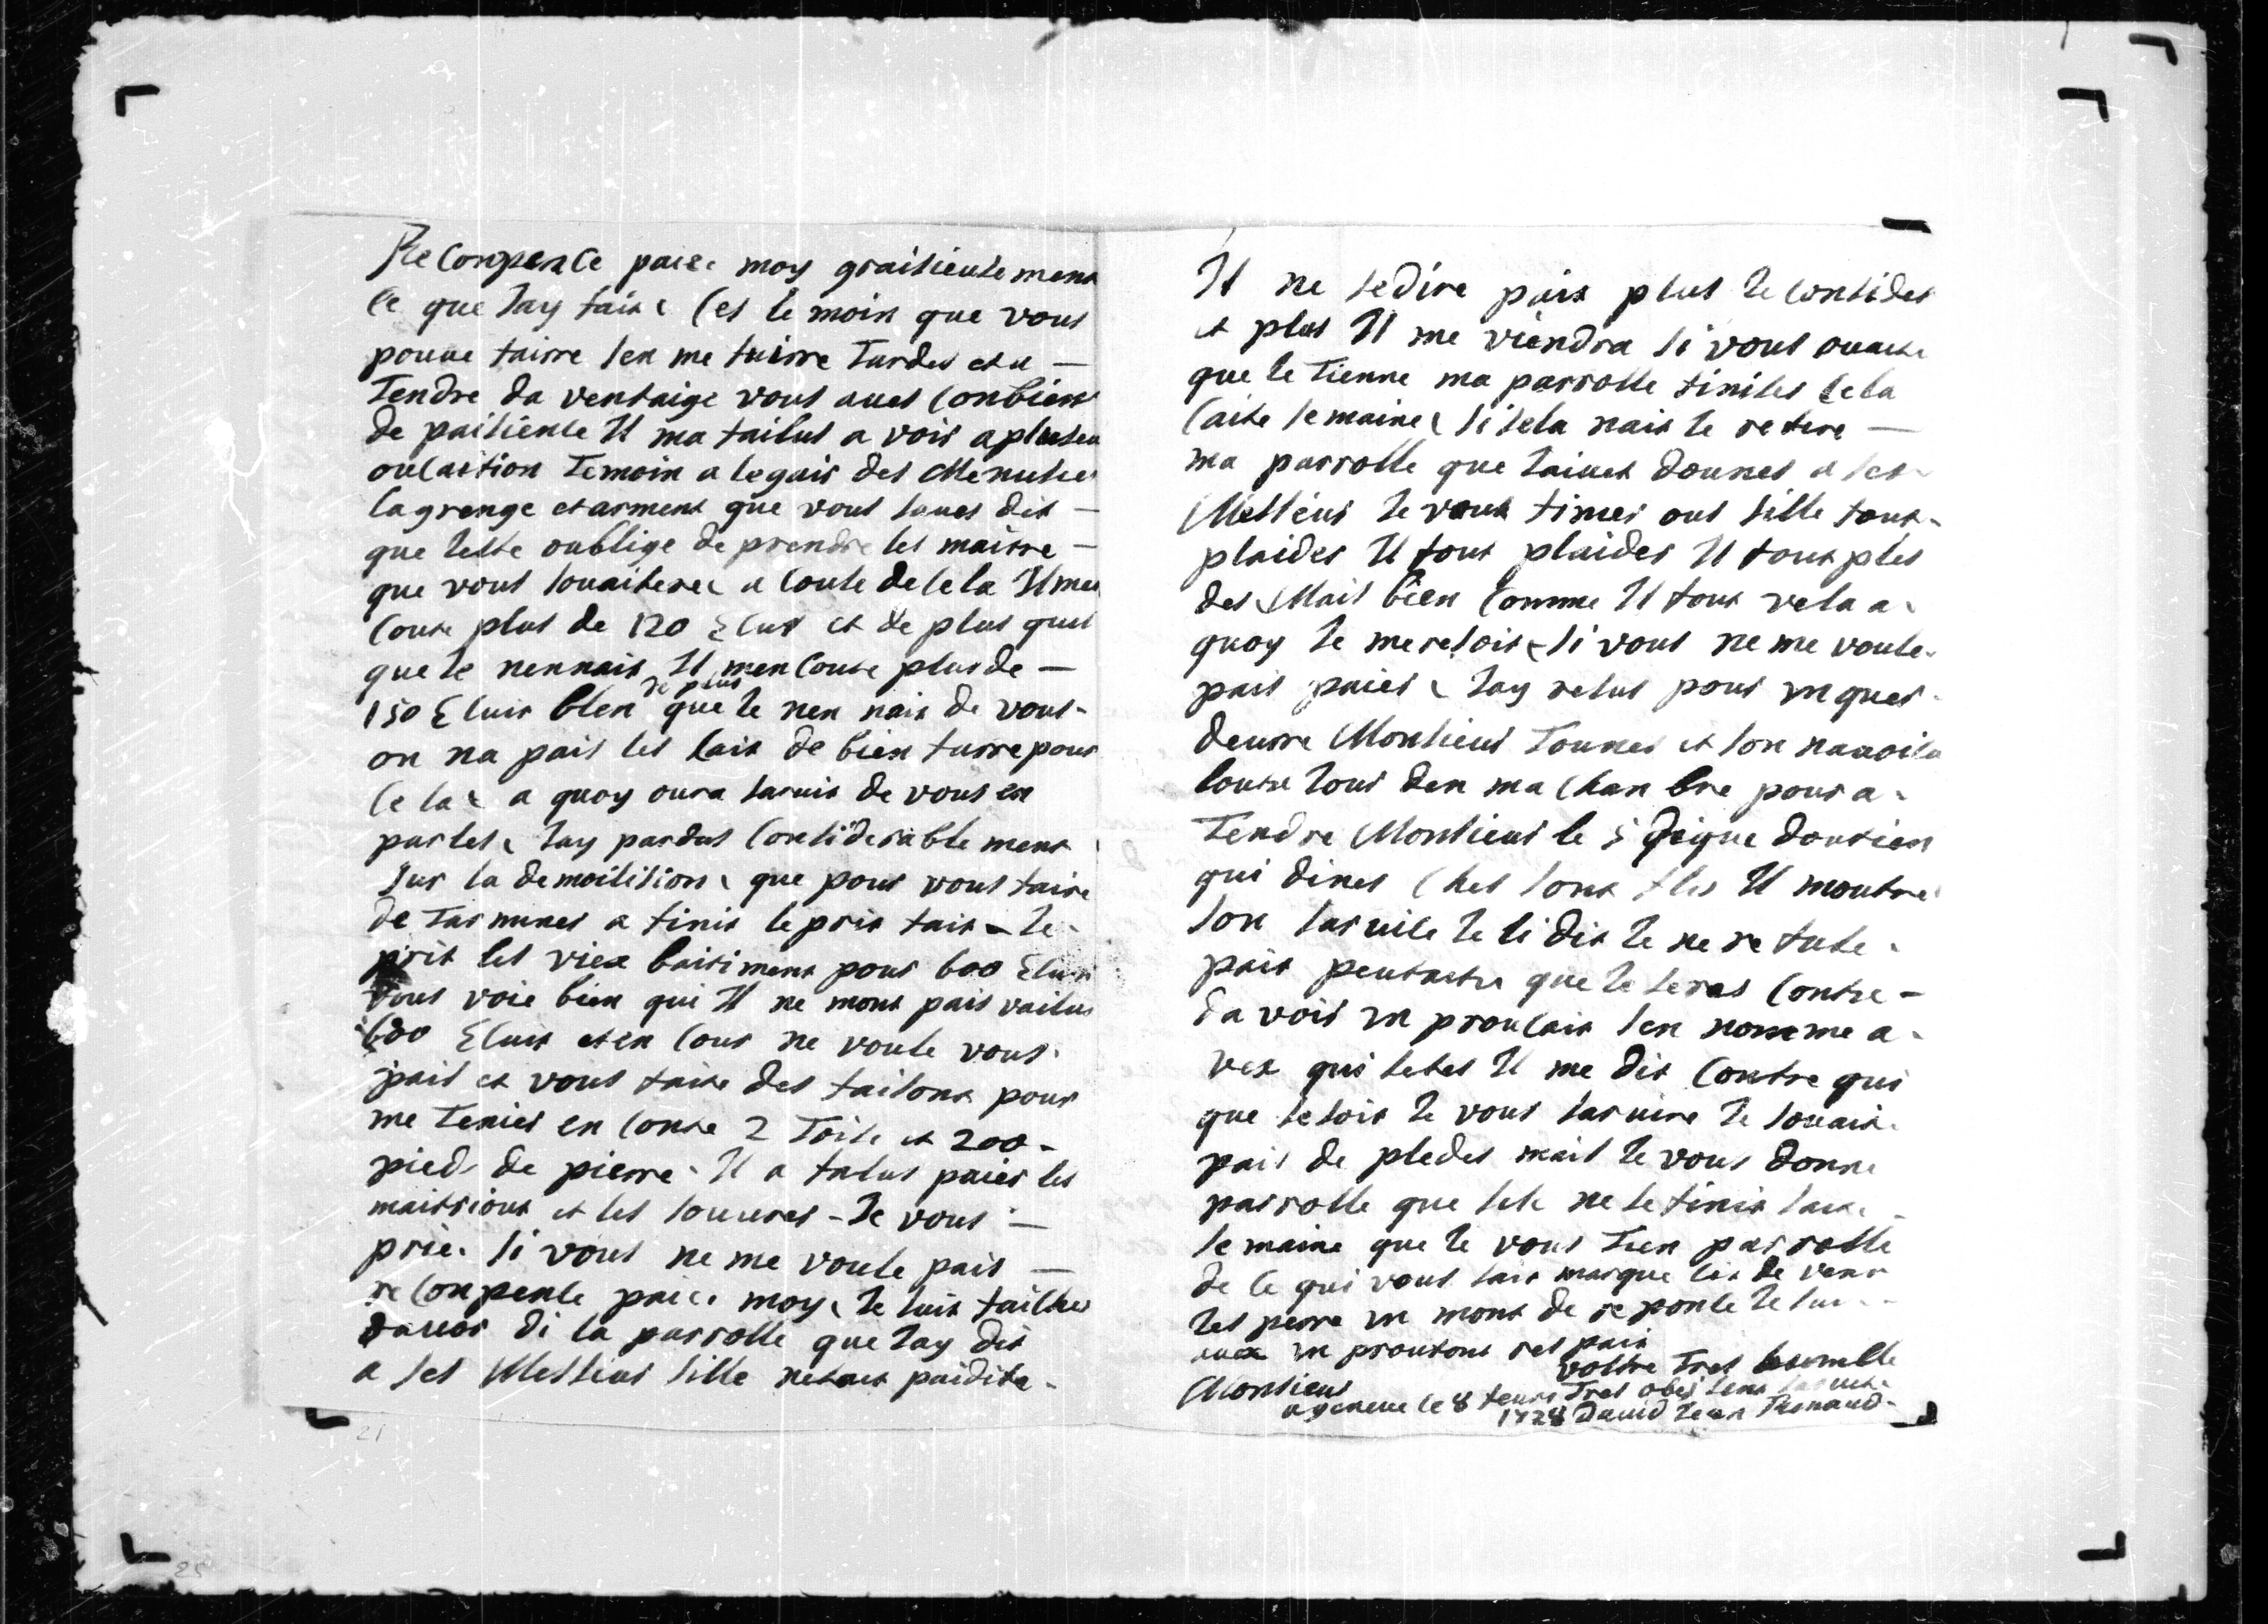 Recompence paier moy graisieusement
ce que Jay fait (es le moin que vous
pouue fairre sen me fairre Tardes et a
Tendre da ventaige vous aues conbien
de paisience Il ma failus a vois a plusieu
oucastion Temoin a legair des Menusie
lagrenge et arment que vous saues dit
que Jestte oublige de prendre les maitre
que vous souaitere a couse de sela Il me
coute plus de 120 Ecus et de plus que
que Je nennais Il men coute plus de
150 Ecuis blen de plus que Je nen nais de vous
on na pais les lais de bien furre pour
se la a quoy oura saruis de vous en
parles Jay pardus considerable ment
sur la demoilision que pour vous faire
de Tarmines a finis le pris fait Je
prit les viex baitiment pour 600 Ecus
vous voie bien qui Il ne mont pais vailus
600 Ecuis et en cous ne voule vous
pais et vous faite des faisons pour
me Tenier en conte 2 Toise et 200
pied de pierre Il a falus paier les
maittrions et les souures Je vous
prie si vous ne me voule pais
reconpense paier moy Je suis faillus
dauoir di la parrolle que Jay dit
a ses Messieus sille netait paidita
Il ne sedire pais plus Je consider
et plus Il me viendra si vous ouaite
que Je Tienne ma parrolle finites sela
saite semaine si sela nait Je retire
ma parrolle que Jaiuet dounes a ses
Messieus Je vous fimer ous sille fout
plaider Il fout plaider Il fout ples
des Mais bien comme Il fout vela a
quoy Je me resois si vous ne me voule
pais paier Jay refus pour vn ques
deurre Monsieus Tounes et son nauoita
loutre Jour den ma chan bre pour a
Tendre Monsieus le sideique doutien
qui diner ches sont fles Il montre
son saruile Je li dit Je ne re fuse
pais peutaetre que Je seras contre
da vois vn proulais sen nomme a
vex qui setes Il me dit contre qui
que se soit Je vous saruire Je souait
pais de pledes mais Je vous donne
parrolle que sile ne le finis saite
semaine que Je vous Tien parrolle
de ce qui vous fait marque
Jes perre vn mont de reponse Je sui
auex vn proufont respais
vostre Tres houmble
Monsieus Tres obeisent
a geneue le 8 feurie
1728 Dauid Jean